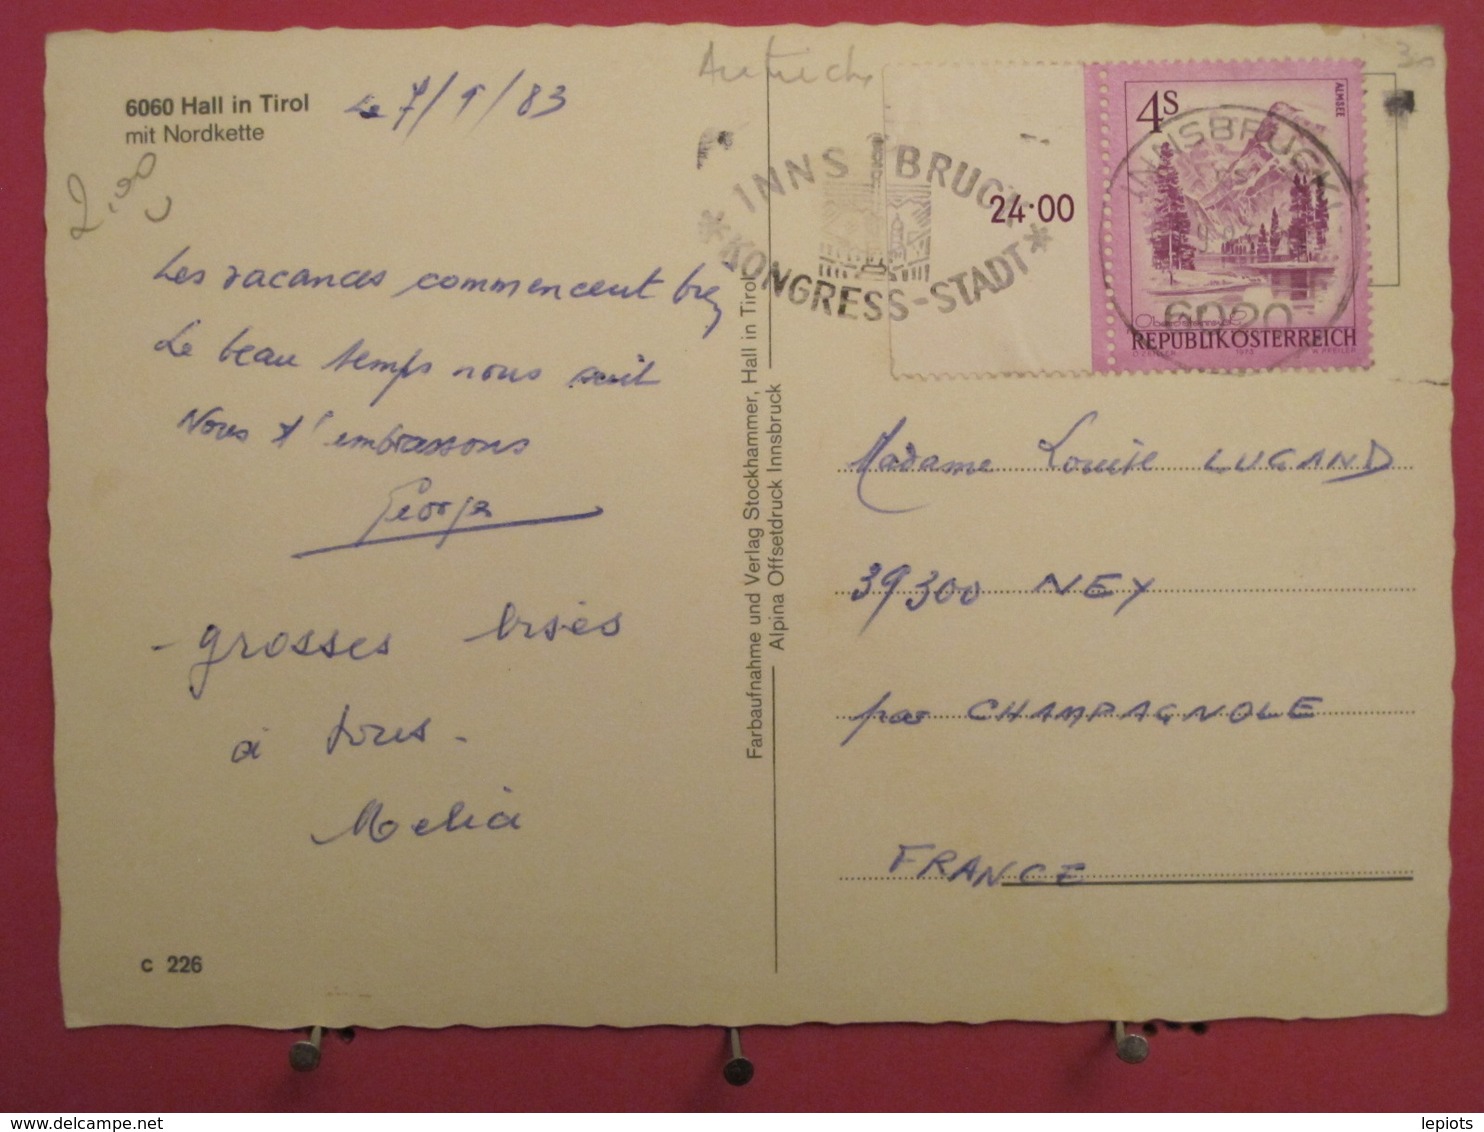 6060 Hall in Tirol
mit Nordkette
Le 7/9/83
2,90
Les vacances commencent
Le beau temps nous suit
Nous t'embrassons
George
- grosses bises
à tous -
c 226
Farbaufnahme und Verlag Stockhammer, Hall in Tirol
Alpina Offsetdruck Innsbruck
Autriche
INNSBRUCK
KONGRESS-STADT
24·00
4S
ALMSEE
INNSBRUCK
6020
REPUBLIK ÖSTERREICH
Madame Louise LUGAND
39300 NEY
par CHAMPAGNOLE
FRANCE
lepiots